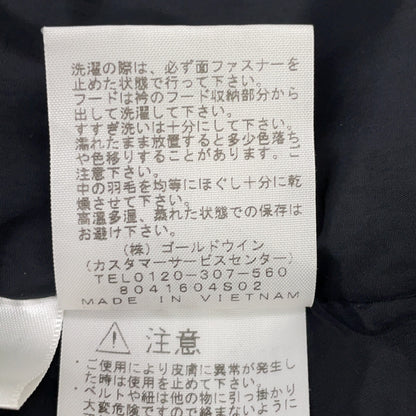 洗濯の際は、必ず面ファスナーを
止めた状態で行って下さい。
フードは衿のフード収納部分から
出して洗濯して下さい。
すすぎ洗いは十分にして下さい。
濡れたまま放置すると多少色落ち
や色移りすることがあります。ご
注意下さい。
中の羽毛を均等にほぐし十分に乾
燥させて下さい。
高温多湿、蒸れた状態での保存は
お避け下さい。
(株)ゴールドウイン
(カスタマーサービスセンター)
TEL0120-307-560
8041604S02
MADE IN VIETNAM
注意
ご使用により皮膚に異常が発生し
た時は使用を止め
ベルトや紐は他の物に引っ掛かり
大変危険ですので絡まないように